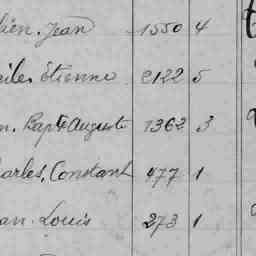 lien. Jean 1550 4
Étienne 2122 5
n. Bapte Auguste 1362 3
harles, Constant 477 1
an. Louis 273 1